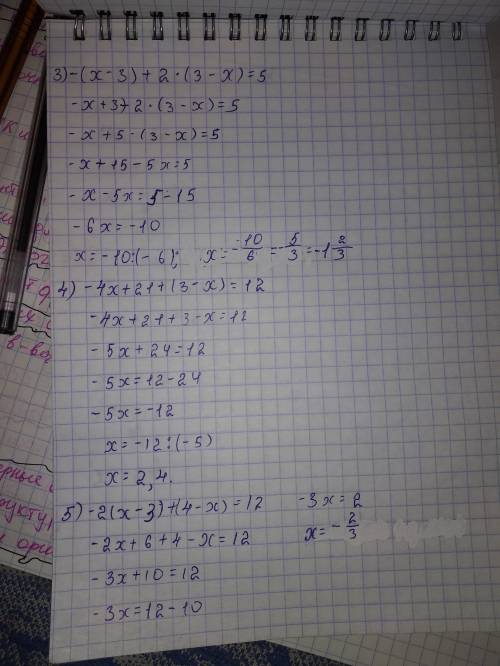 3) -(x-3)+2·(3-x)=5
-x+3+2·(3-x)=5
-x+5·(3-x)=5
-x+15-5x=5
-x-5x=5-15
-6x=-10
x=-10:(-6); x=-10/6=-5/3=-1 2/3
4) -4x+21+(3-x)=12
-4x+21+3-x=12
-5x+24=12
-5x=12-24
-5x=-12
x=-12:(-5)
x=2,4.
5) -2(x-3)+(4-x)=12
-2x+6+4-x=12
-3x+10=12
-3x=12-10
-3x=2
x=-2/3